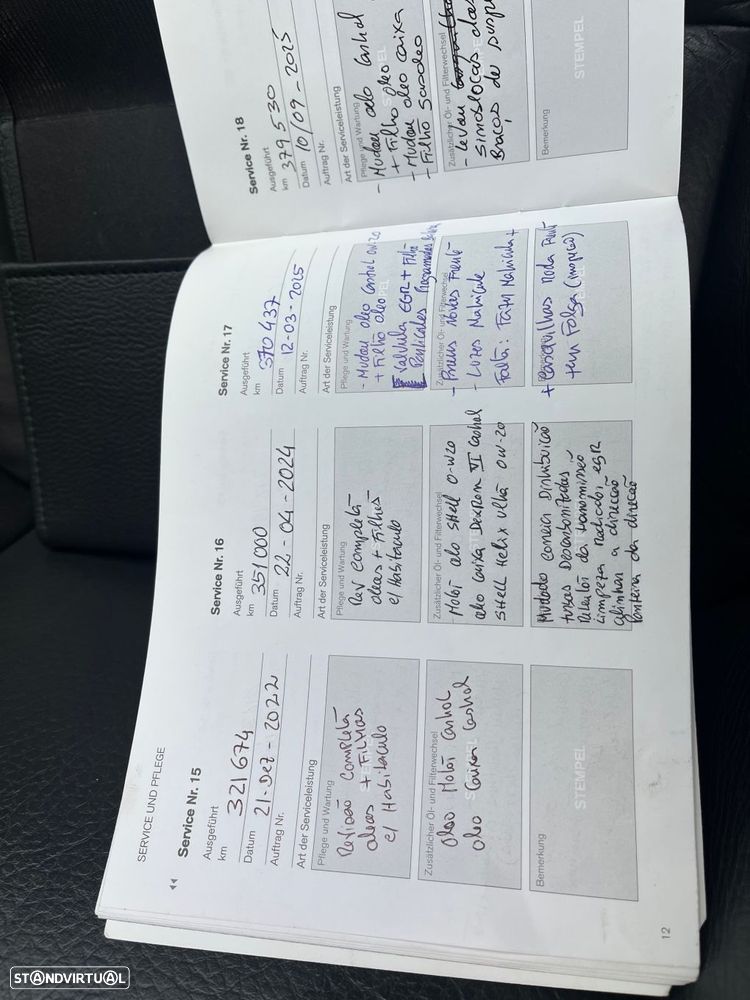 SERVICE UND PFLEGE
Service Nr. 15
Ausgeführt
km 321674
Datum 21-Dez-2022
Auftrag Nr.
Art der Serviceleistung
Pflege und Wartung
Revisão completa
oleos + Filtros
c/ Habitaculo
Zusätzlicher Öl- und Filterwechsel
Oleo Motor Castrol
oleo Caixa Castrol
Bemerkung
STEMPEL
12
Service Nr. 16
Ausgeführt
km 351000
Datum 22-04-2024
Auftrag Nr.
Art der Serviceleistung
Pflege und Wartung
Rev completa
oleos + Filtros
c/ Habitaculo
Zusätzlicher Öl- und Filterwechsel
- Motor oleo Shell 0-W20
oleo caixa Dexron VI Castrol
Shell Helix ultra 0W-20
Mudado correia Distribuição
turbos Descarbonizados
da transmissão
limpeza radiador, EGR
alinhar a direcção
Ponteira da direcão
Service Nr. 17
Ausgeführt
km 370437
Datum 12-03-2025
Auftrag Nr.
Art der Serviceleistung
Pflege und Wartung
- Mudou oleo Castrol 0W-20
+ Filtro oleo
Valvula EGR + Filtro
Particulas
Zusätzlicher Öl- und Filterwechsel
- Pneus Novos Frente
- Luzes Matricula
Falta: Farol Matricula +
+ Casquilhos Roda Frente
tem Folga (inspeção)
Service Nr. 18
Ausgeführt
km 379530
Datum 10/09-2025
Auftrag Nr.
Art der Serviceleistung
Pflege und Wartung
- Mudou oleo Castrol
+ Filtro oleo
- Mudou oleo caixa
- Filtro
Zusätzlicher Öl- und Filterwechsel
- Levou
sinoblocos dos
Braços de susp
Bemerkung
STEMPEL
STANDVIRTUAL